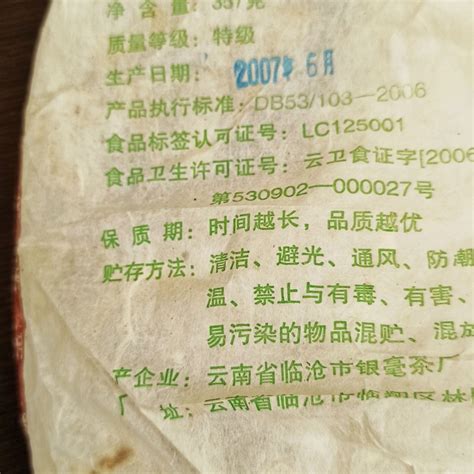 净含量：357克
质量等级：特级
生产日期：2007年6月
产品执行标准：DB53/103—2006
食品标签认可证号：LC125001
食品卫生许可证号：云卫食证字[2006
第530902—000027号
保质期：时间越长，品质越优
贮存方法：清洁、避光、通风、防潮
温、禁止与有毒、有害、
易污染的物品混贮、混放
产企业：云南省临沧市银毫茶厂
厂址：云南省临沧市临翔区林